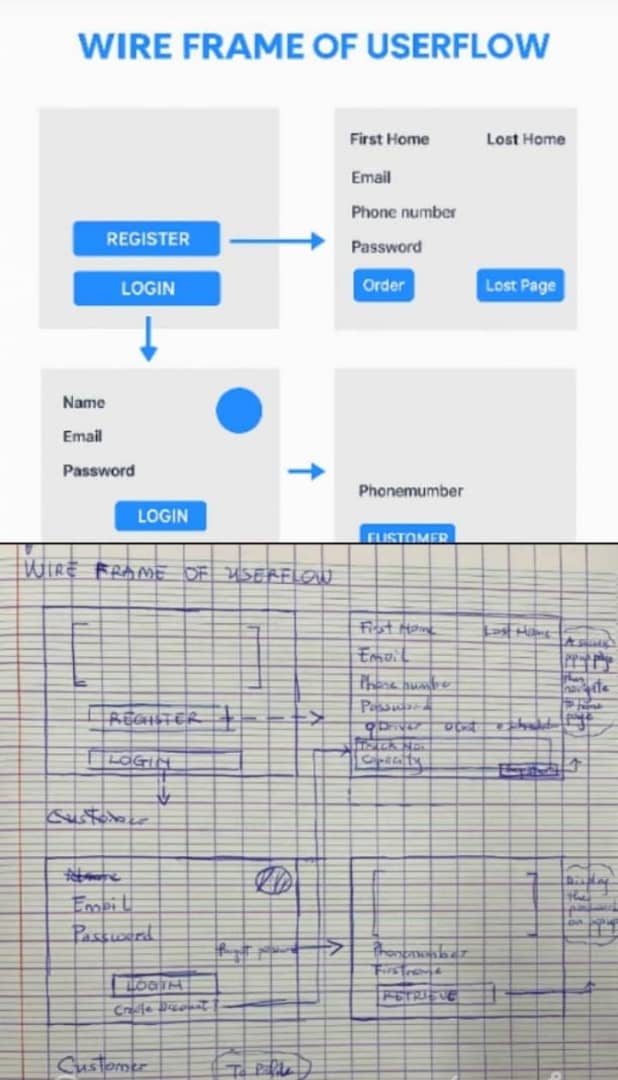 WIRE FRAME OF USERFLOW
REGISTER
LOGIN
First Home Lost Home
Email
Phone number
Password
Order Lost Page
Name
Email
Password
LOGIN
Phonemumber
CUSTOMER
WIRE FRAME OF USERFLOW
REGISTER
LOGIN
First Name Last Name
Email
Phone number
Password
Driver
Truck No.
Capacity
popup page
then
navigate
to home
page
Customer
Name
Email
Password
LOGIN
Create Account?
Phonenumber
Firstname
RETRIEVE
Display
the
password
on popup
Customer